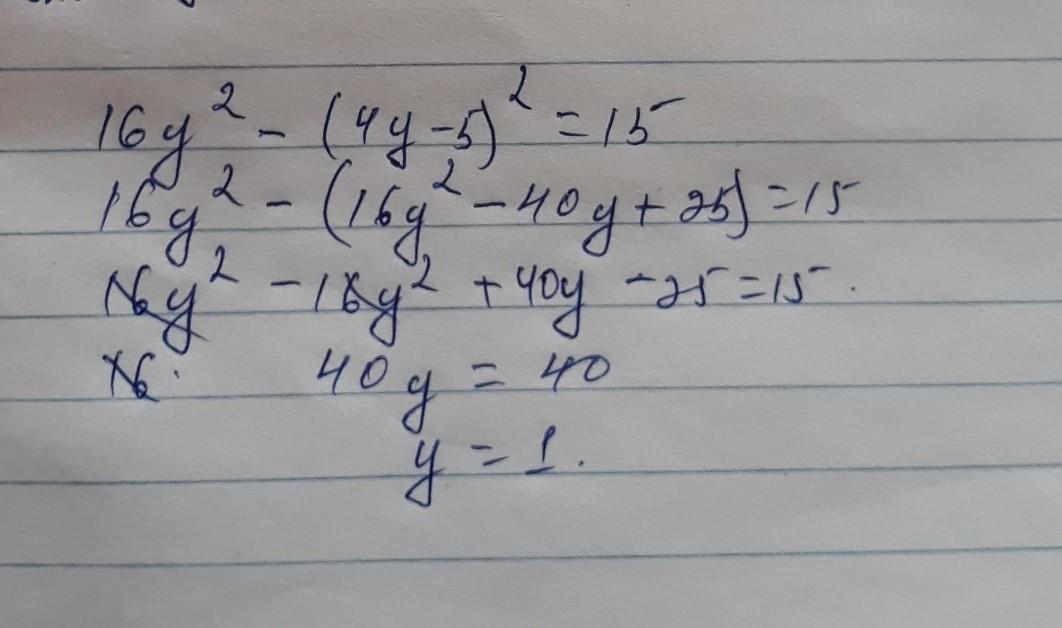 16y² - (4y-5)² = 15
16y² - (16y² - 40y + 25) = 15
16y² - 16y² + 40y - 25 = 15.
16. 40y = 40
y = 1.